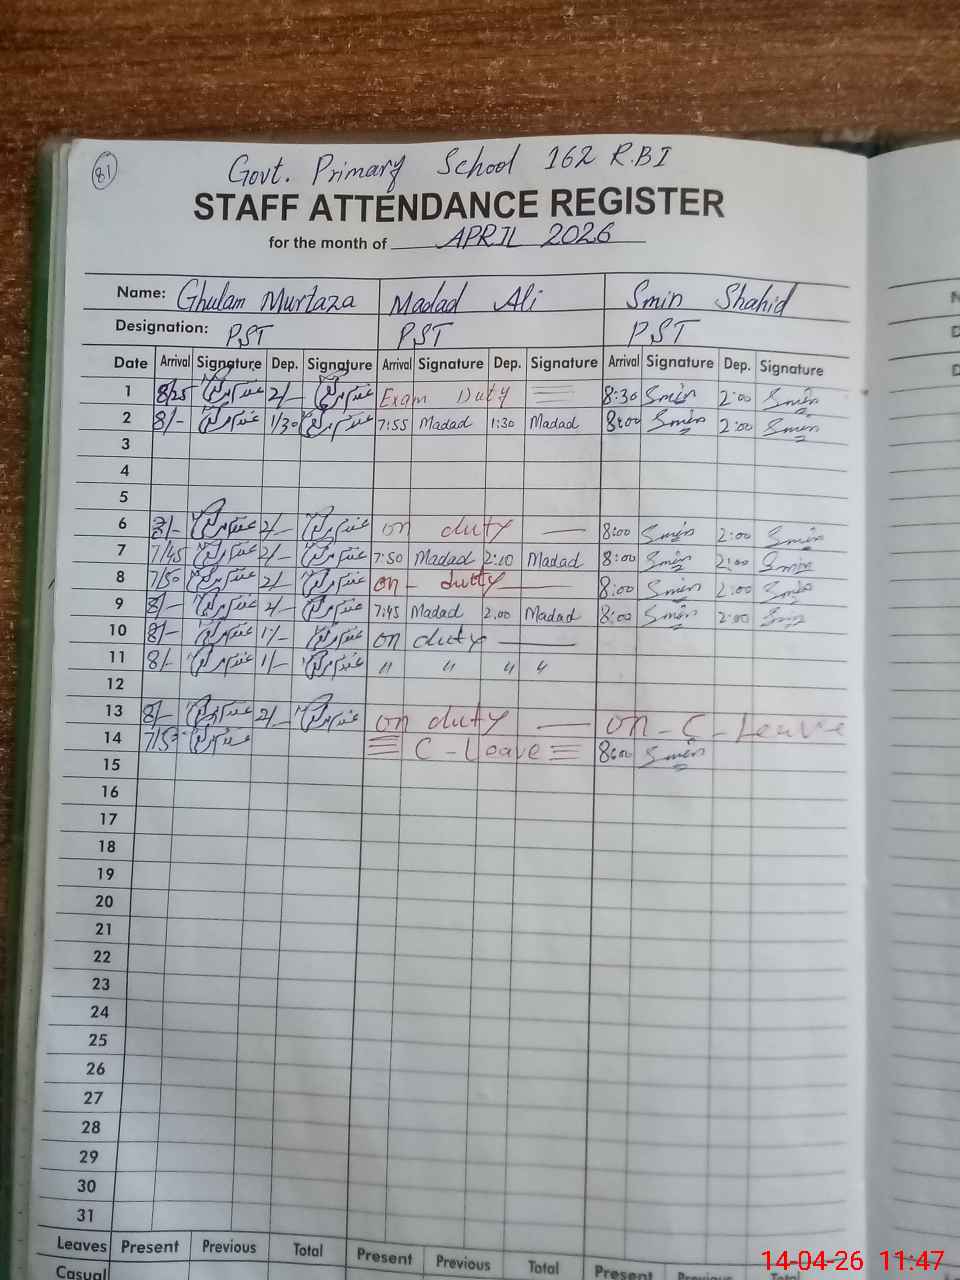 81
Govt. Primary School 162 R.B I
STAFF ATTENDANCE REGISTER
for the month of APRIL 2026
Name: Ghulam Murtaza Madad Ali Smin Shahid
Designation: PST PST PST
Date Arrival Signature Dep. Signature Arrival Signature Dep. Signature Arrival Signature Dep. Signature
1 8/25 2/- Exam Duty 8:30 Smin 2:00 Smin
2 8/- 1/30 7:55 Madad 1:30 Madad 8:00 Smin 2:00 Smin
3
4
5
6 8/- 2/- on duty 8:00 Smin 2:00 Smin
7 7/45 2/- 7:50 Madad 2:10 Madad 8:00 Smin 2:00 Smin
8 7/50 2/- on - dutty 8:00 Smin 2:00 Smin
9 8/- 2/- 7:45 Madad 2.00 Madad 8:00 Smin 2:00 Smin
10 8/- 1/- on duty
11 8/- 1/- " " " "
12
13 8/- 2/- on duty on - C - Leave
14 C - Leave 8:00 Smin
15
16
17
18
19
20
21
22
23
24
25
26
27
28
29
30
31
Leaves Present Previous Total Present Previous Total Present Previous Total
Casual
14-04-26 11:47